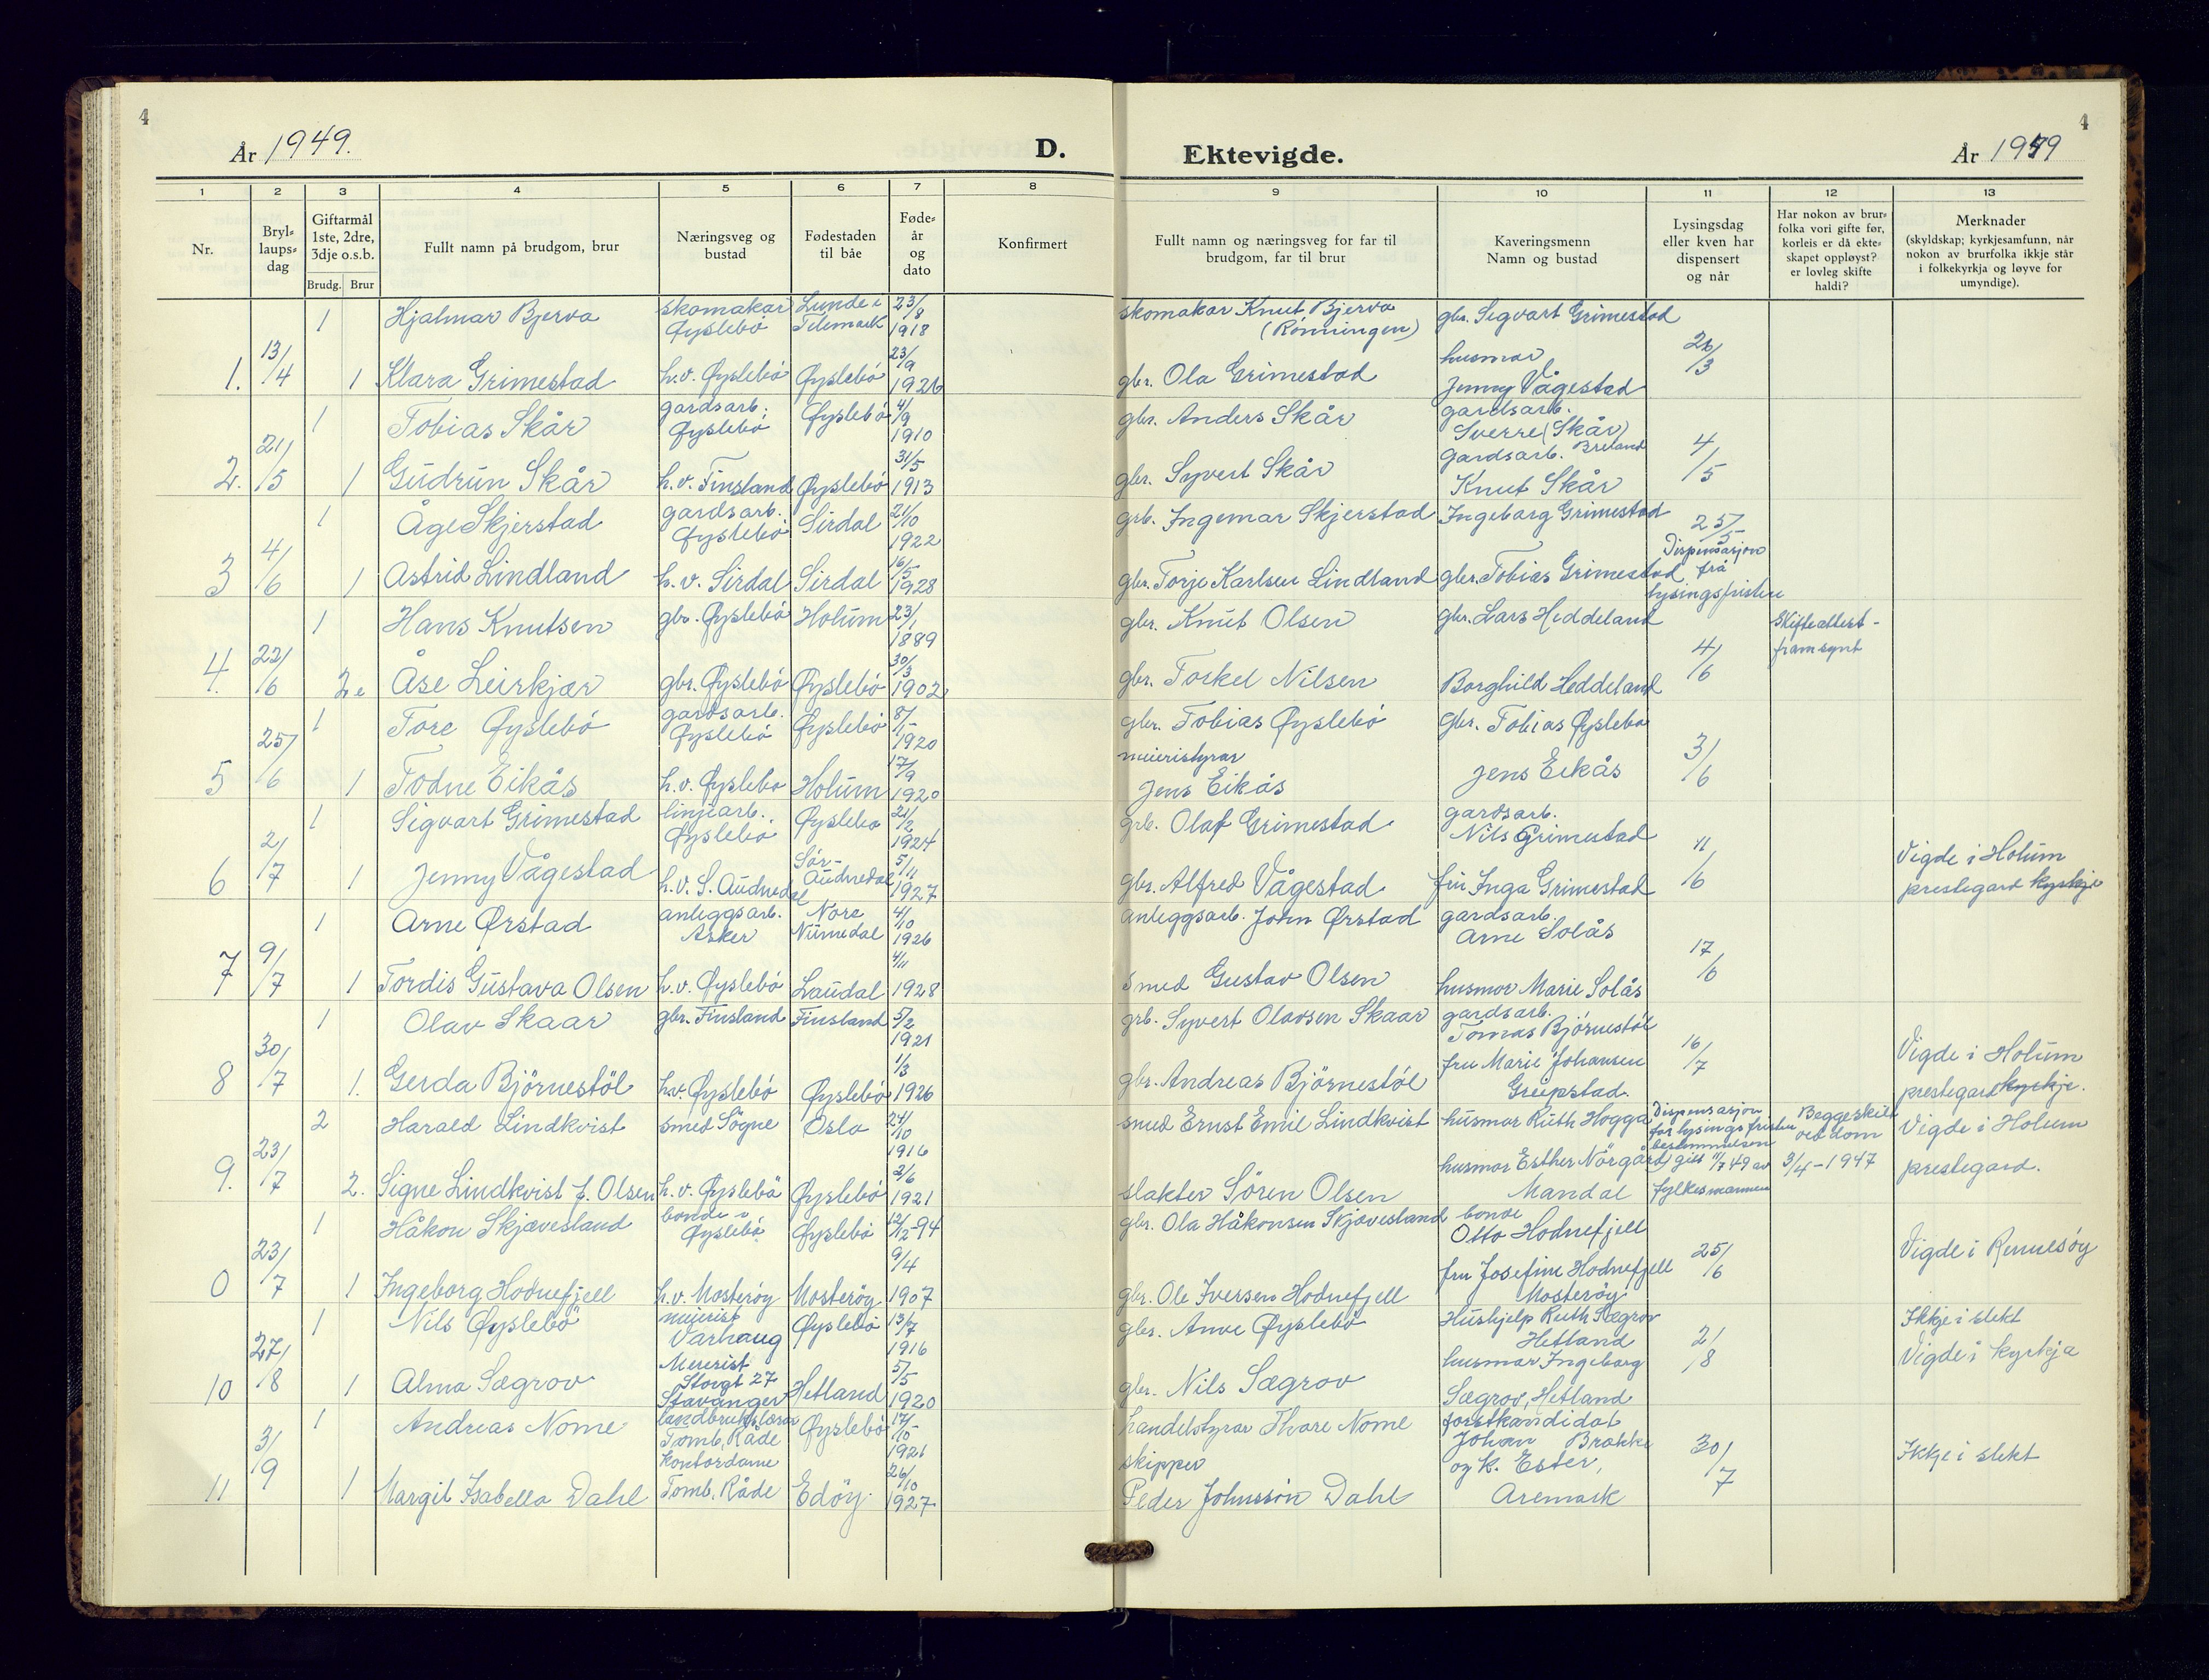 4
4
År 1949.
D.
Ektevigde.
År 1949
1 2 3 4 5 6 7 8 9 10 11 12 13
Nr.
Bryl-
laups-
dag
Giftarmål
1ste, 2dre,
3dje o.s.b.
Brudg. Brur
Fullt namn på brudgom, brur
Næringsveg og
bustad
Fødestaden
til båe
Føde-
år
og
dato
Konfirmert
Fullt namn og næringsveg for far til
brudgom, far til brur
Kaveringsmenn
Namn og bustad
Lysingsdag
eller kven har
dispensert
og når
Har nokon av brur-
folka vori gifte før,
korleis er då ekte-
skapet oppløyst?
er lovleg skifte
haldi?
Merknader
(skyldskap; kyrkjesamfunn, når
nokon av brurfolka ikkje står
i folkekyrkja og løyve for
umyndige).
1. 13/4
1 Hjalmar Bjerva
skomakar
Øyslebö
Lunde i
Telemark
23/8
1918
skomakar Knut Bjerva
(Rönningen)
gbr. Sigvart Grimestad
1 Klara Grimestad
h.v. Øyslebö
Øyslebö
23/9
1926
gbr. Ola Grimestad
husmor
Jenny Vågestad
26/3
2. 21/5
1 Tobias Skår
gardsarb.
Øyslebö
Øyslebö
4/9
1910
gbr. Anders Skår
gardsarb.
Sverre (Skår)
Breland
1 Gudrun Skår
h.v. Finsland
Øyslebö
31/5
1913
gbr. Syvert Skår
gardsarb.
Knut Skår
4/5
3 4/6
1 Åge Skjerstad
gardsarb.
Øyslebö
Sirdal
21/10
1922
grb. Ingemar Skjerstad
Ingeborg Grimestad
1 Astrid Lindland
h.v. Sirdal
Sirdal
16/5
1928
gbr. Torje Karlsen Lindland
gbr. Tobias Grimestad
25/5
Dispensasjon
frå
lysingsfristen
4. 22/6
1 Hans Knutsen
gbr. Øyslebö
Holum
23/1
1889
gbr. Knut Olsen
gbr. Lars Heddeland
2e Åse Leirkjær
gbr. Øyslebö
Øyslebö
30/3
1902
gbr. Torkel Nilsen
Borghild Heddeland
4/6
Skifteattest-
framsynt
5 25/6
1 Tore Øyslebö
gardsarb.
Øyslebö
Øyslebö
8/1
1920
gbr. Tobias Øyslebö
Gbr. Tobias Øyslebö
1 Todne Eikås
h.v. Øyslebö
Holum
17/9
1920
meieristyrar
Jens Eikås
Jens Eikås
3/6
6 2/7
1 Sigvart Grimestad
linjearb.
Øyslebö
Øyslebö
21/2
1924
grb. Olaf Grimestad
gardsarb.
Nils Grimestad
1 Jenny Vågestad
h.v. S. Audnedal
Sör-
Audnedal
5/11
1927
gbr. Alfred Vågestad
fru Inga Grimestad
11/6
Vigde i Holum
prestegard kyrkje
7 9/7
1 Arne Ørstad
anleggsarb.
Asker
Nore
Numedal
4/10
1926
anleggsarb. John Ørstad
gardsarb.
Arne Solås
1 Tordis Gustava Olsen
h.v. Øyslebö
Laudal
4/11
1928
smed Gustav Olsen
husmor Marie Solås
17/6
8 30/7
1 Olav Skaar
gbr. Finsland
Finsland
5/2
1921
grb. Syvert Olavsen Skaar
gardsarb.
Tomas Björnestöl
1. Gerda Björnestöl
h.v. Øyslebö
Øyslebö
1/3
1926
gbr. Andreas Björnestöl
fru Marie Johansen
Greipstad.
16/7
Vigde i Holum
prestegard kyrkje.
9. 23/7
2 Harald Lindkvist
smed Sögne
Oslo
24/10
1916
smed Ernst Emil Lindkvist
husmor Ruth Hogga
2. Signe Lindkvist f. Olsen
h.v. Øyslebö
Øyslebö
2/6
1921
slakter Sören Olsen
husmor Esther Nörgård
Mandal
Dispensasjon
for lysingsfristen
bestemmelsen
gitt 11/7 49 av
fylkesmannen
Begge skilt
ved dom
3/4-1947
Vigde i Holum
prestegard.
0 23/7
1 Håkon Skjævesland
bonde i
Øyslebö
Øyslebö
12/12-94
gbr. Ola Håkonsen Skjævesland
bonde
Otto Hodnefjell
1 Ingeborg Hodnefjell
h.v. Mosteröy
Mosteröy
9/4
1907
gbr. Ole Iversen Hodnefjell
fru Josefine Hodnefjell
Mosteröy
25/6
Vigde i Rennesöy
10 27/8
1 Nils Øyslebö
meierist
Varhaug
Øyslebö
13/7
1916
gbr. Anve Øyslebö
Hushjelp Ruth Sægrov
Hetland
1 Alma Sægrov
Meierist
Storgt 27
Stavanger
Hetland
5/5
1920
gbr. Nils Sægrov
husmor Ingeborg
Sægrov, Hetland
2/8
Ikkje i slekt
Vigde i kyrkja
11 3/9
1 Andreas Nome
landbrukslærar
Tomb, Råde
Øyslebö
17/10
1921
handelstyrar Thore Nome
forstkandidat
Johan Brakke
1 Margit Isabella Dahl
kontordame
Tomb, Råde
Edöy
26/10
1927
skipper
Peder Johnson Dahl
og k. Ester,
Aremark
30/7
Ikkje i slekt